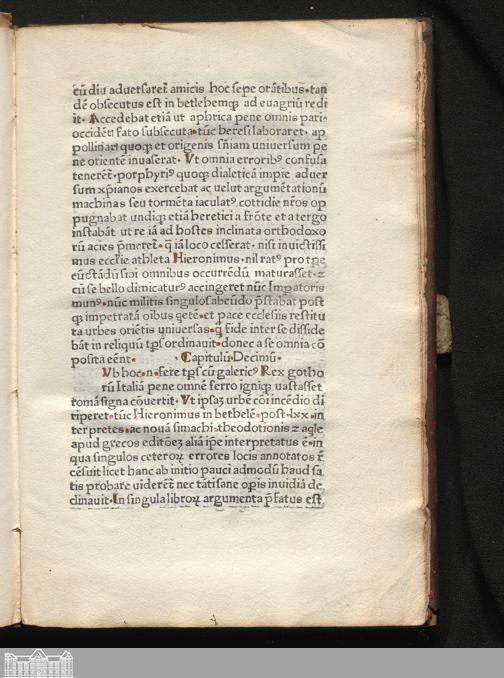 cũ diu aduersaret᷒ amicis hoc sepe orãtibus·tan
dẽ obsecutus est in betlehemqꝫ ad euagriũ redi
it· Accedebat etiã ut aphrica pene omnis pari·
occidẽti fato subsecuta·tũc heresi laboraret· ap
pollinari quoqꝫ et origenis sñiam uniuersum pe
ne orientẽ inuaserat· Ut omnia erroribꝰ confusa
tenerẽt·porphyriꝰ quoqꝫ dialeticã impie aduer
sum xp̃ianos exercebat ac uelut argumẽtationũ
machinas seu tormẽta iaculatꝰ cottidie nr̃os op
pugnabat undiqꝫ etiã heretici a frõte et a tergo
instabãt ut re iã ad hostes inclinata orthodoxo
rũ acies p̃meret᷒·q̃ iã loco cesserat· nisi inuictissi
mus eccl̃ie athleta Hieronimus·nil ratꝰ pro tp̃e
cũctãdũ sibi omnibus occurrẽdũ maturasset·⁊
cũ se bello dimicaturꝰ accingeret nũc Imp̃atoris
munꝰ·nũc militis singulos abeũdo p̃stabat post
qꝫ impetratã oĩbus q̃etẽ·et pace ecclesiis restitu
ta urbes oriẽtis uniuersas·q̃ fide inter se disside
bãt in reliquũ tp̃s ordinauit·donec a se omnia cõ
posita eẽnt· ·Capitulũ·Decimũ·
Ub hoc·n·fere tp̃s cũ galericꝰ Rex gotho
rũ Italiã pene omnẽ ferro igniqꝫ uastasset
romã signa cõuertit· Ut ipsaꝫ urbẽ cõi incẽdio di
riperet·tũc Hieronimus in bethelẽ·post·lxx·in
terpretes·ac nouã simachi·theodotionis ⁊ aq̃le
apud grecos editõeꝫ aliã ip̃e interpretatus ẽ·in
qua singulos ceteroꝝ errores locis annotatos r̃
cẽsuit licet hanc ab initio pauci admodũ haud sa
tis probare uiderẽt᷒ nec tãti sane op̃is inuidiã de
clinauit·In singula libroꝝ argumenta p̃fatus est